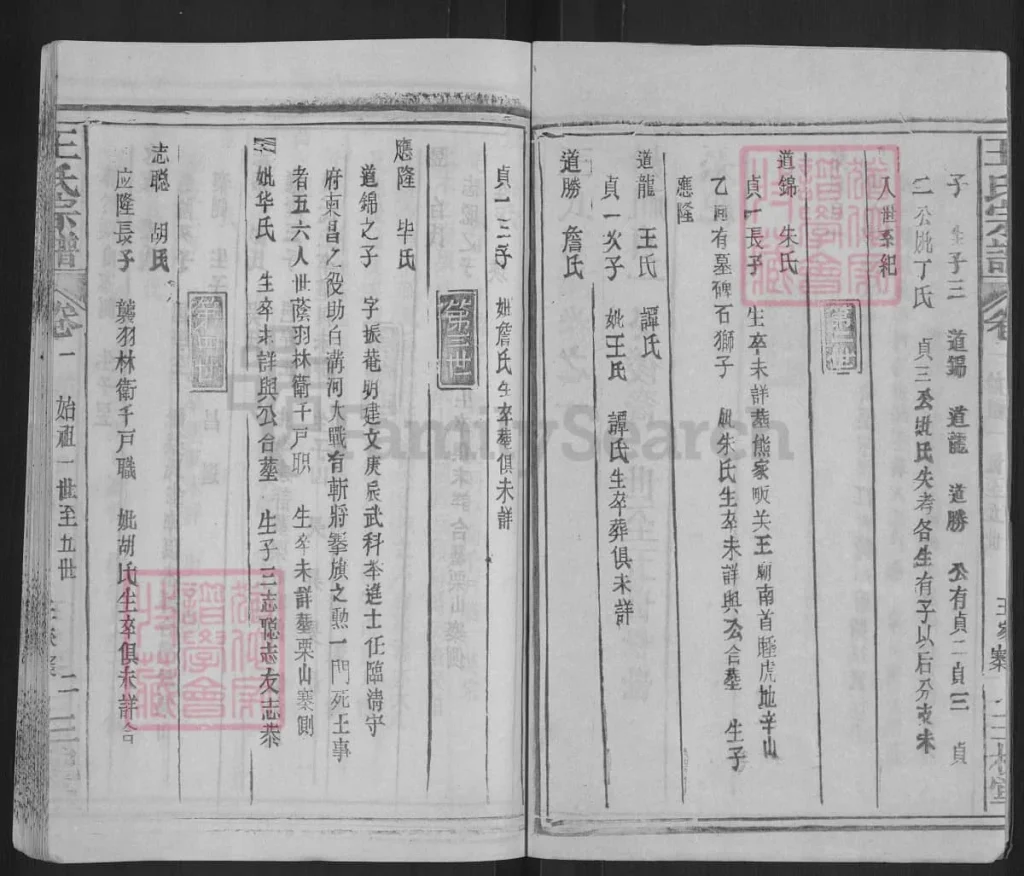 王氏宗譜 卷 王家寨 三槐堂
子 生子三 道錫 道龍 道勝 公有貞二貞三 貞
二公妣丁氏 貞三公妣氏失考各生有子以后分支未
入世系紀
第二世
道錦 朱氏
貞一長子 生卒未詳葬熊家畈关王廟南首睡虎地辛山
乙向有墓碑石獅子 妣朱氏生卒未詳與公合墓 生子
應隆
道龍 王氏 譚氏
貞一次子 妣王氏 譚氏生卒葬俱未詳
道勝 詹氏
貞一三子 妣詹氏生卒葬俱未詳
第三世
應隆 毕氏
道錦之子 字振菴明建文庚辰武科举進士任臨清守
府東昌之役助白溝河大戰有斬將搴旗之勲一門死王事
者五六人世蔭羽林衛千户职 生卒未詳墓栗山寨側
妣华氏 生卒未詳與公合墓 生子三志聰志友志恭
第四世
志聰 胡氏
应隆長子 襲羽林衛千戸職 妣胡氏生卒俱未詳合
王氏宗譜 卷一 始祖一世至五世 二
FamilySearch